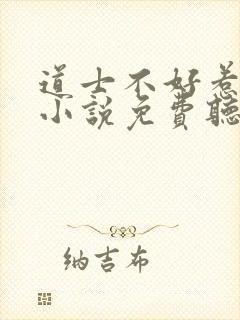 道士不好惹
小說免費聽
纳吉布